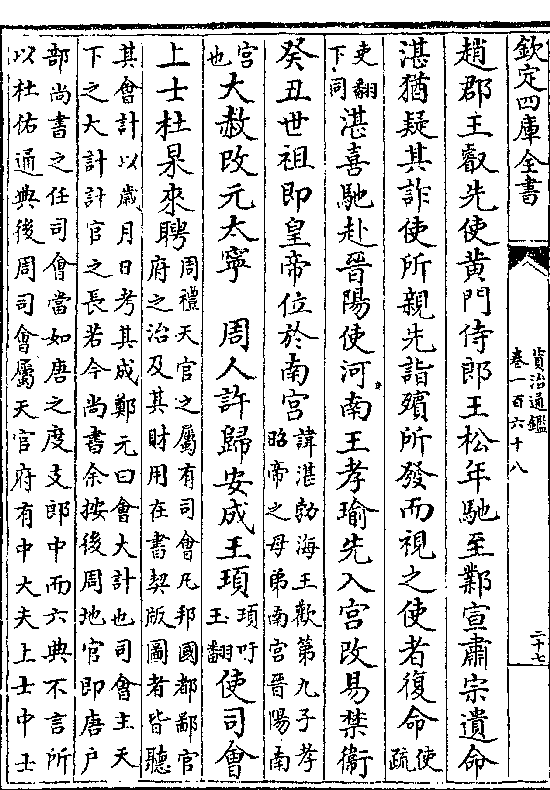 欽定四庫全書
資治通鑑
卷一百六十八
二十七
趙郡王叡先使黄門侍郎王松年馳至鄴宣肅宗遺命
湛猶疑其詐使所親先詣殯所發而視之使者復命使疏
吏翻下同湛喜馳赴晉陽使河南王孝瑜先入宫改易禁衞
癸丑世祖即皇帝位於南宫諱湛勃海王歡第九子孝昭帝之母弟南宫晉陽南
宫也大赦改元太寧　周人許歸安成王頊頊吁玉翻使司會
上士杜杲來聘周禮天官之屬有司會凡邦國都鄙官府之治及其財用在書契版圖者皆聽
其會計以歲月日考其成鄭元曰會大計也司會主天
下之大計計官之長若今尚書余按後周地官即唐户
部尚書之任司會當如唐之度支郎中而六典不言所
以杜佑通典後周司會屬天官府有中大夫上士中士